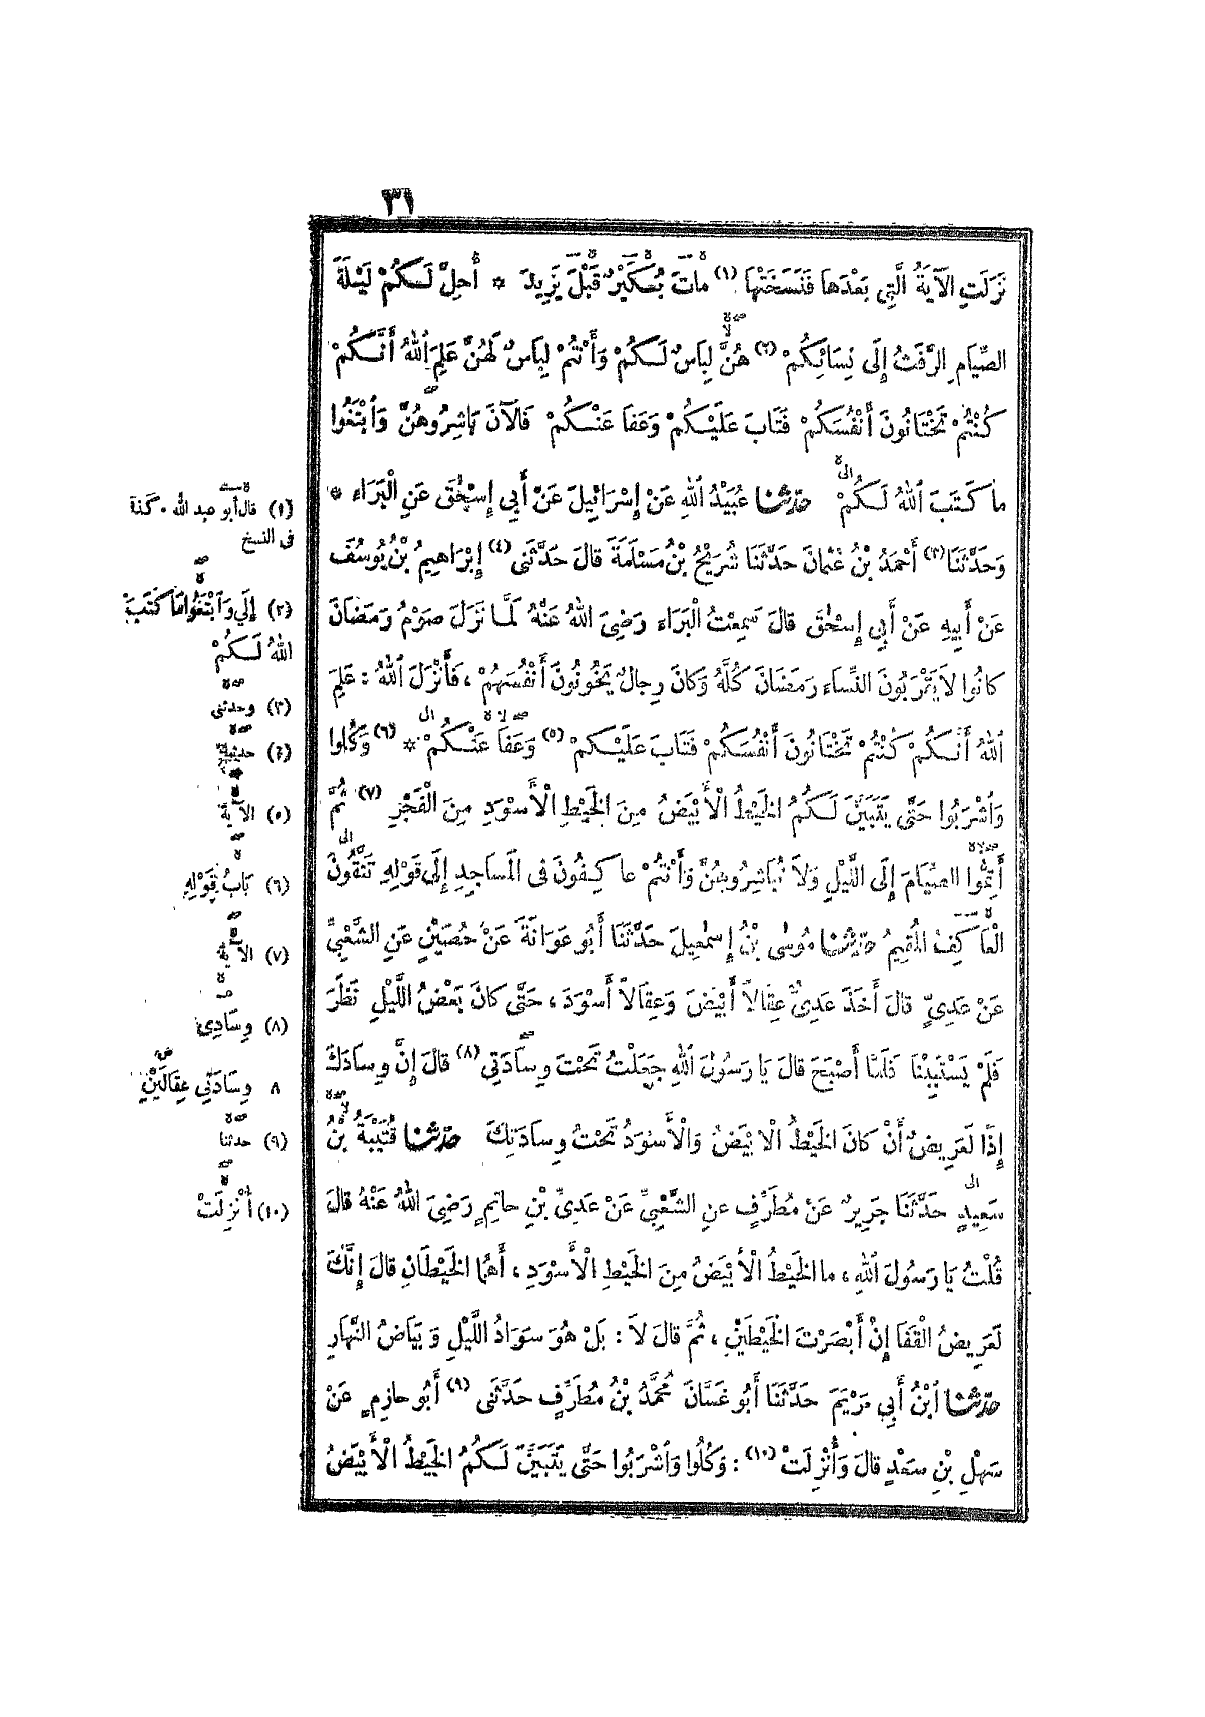 ٣١
نَزَلَتِ الآيَةُ الَّتِي بَعْدَهَا فَنَسَخَتْهَا (١) ماتَ بُكَيْرٌ قَبْلَ يَزِيدَ * أُحِلَّ لَكُمْ لَيْلَةَ
الصِّيَامِ الرَّفَثُ إِلَى نِسَائِكُمْ (٢) هُنَّ لِبَاسٌ لَكُمْ وَأَنْتُمْ لِبَاسٌ لَهُنَّ عَلِمَ اللهُ أَنَّكُمْ
كُنْتُمْ تَخْتَانُونَ أَنْفُسَكُمْ فَتَابَ عَلَيْكُمْ وَعَفَا عَنْكُمْ فَالآنَ بَاشِرُوهُنَّ وَابْتَغُوا
ما كَتَبَ اللهُ لَكُمْ حدّثنا عُبَيْدُ اللهِ عَنْ إِسْرَائِيلَ عَنْ أَبِي إِسْحٰقَ عَنِ الْبَرَاءِ *
وَحَدَّثَنَا (٣) أَحْمَدُ بْنُ عُثْمَانَ حَدَّثَنَا شُرَيْحُ بْنُ مَسْلَمَةَ قالَ حَدَّثَنِي (٤) إِبْرَاهِيمُ بْنُ يُوسُفَ
عَنْ أَبِيهِ عَنْ أَبِي إِسْحٰقَ قالَ سَمِعْتُ الْبَرَاءَ رَضِيَ اللهُ عَنْهُ لَمَّا نَزَلَ صَوْمُ رَمَضَانَ
كانُوا لاَ يَقْرَبُونَ النِّسَاءَ رَمَضَانَ كُلَّهُ وَكانَ رِجالٌ يَخُونُونَ أَنْفُسَهُمْ ، فَأَنْزَلَ اللهُ : عَلِمَ
اللهُ أَنَّكُمْ كُنْتُمْ تَخْتَانُونَ أَنْفُسَكُمْ فَتَابَ عَلَيْكُمْ (٥) وَعَفَا عَنْكُمْ * (٦) وَكُلُوا
وَاشْرَبُوا حَتَّى يَتَبَيَّنَ لَكُمُ الخَيْطُ الْأَبْيَضُ مِنَ الخَيْطِ الْأَسْوَدِ مِنَ الْفَجْرِ (٧) ثُمَّ
أَتِمُّوا الصِّيَامَ إِلَى اللَّيْلِ وَلاَ تُبَاشِرُوهُنَّ وَأَنْتُمْ عاكِفُونَ فى المَسَاجِدِ إِلَى قَوْلِهِ تَتَّقُونَ
الْعَاكِفُ المُقِيمُ حدّثنا مُوسٰى بْنُ إِسْمٰعِيلَ حَدَّثَنَا أَبُو عَوَانَةَ عَنْ حُصَيْنٍ عَنِ الشَّعْبِيِّ
عَنْ عَدِىٍّ قالَ أَخَذَ عَدِىٌّ عِقَالاً أَبْيَضَ وَعِقَالاً أَسْوَدَ ، حَتَّى كانَ بَعْضُ اللَّيْلِ نَظَرَ
فَلَمْ يَسْتَبِينَا فَلَمَّا أَصْبَحَ قالَ يَا رَسُولَ اللهِ جَعَلْتُ تَحْتَ وِسَادَتِي (٨) قالَ إِنَّ وِسَادَكَ
إِذًا لَعَرِيضٌ أَنْ كانَ الخَيْطُ الْأَبْيَضُ وَالْأَسْوَدُ تَحْتَ وِسَادَتِكَ حدّثنا قُتَيْبَةُ بْنُ
سَعِيدٍ حَدَّثَنَا جَرِيرٌ عَنْ مُطَرِّفٍ عَنِ الشَّعْبِيِّ عَنْ عَدِىِّ بْنِ حاتِمٍ رَضِيَ اللهُ عَنْهُ قالَ
قُلْتُ يَا رَسُولَ اللهِ ، ما الخَيْطُ الْأَبْيَضُ مِنَ الخَيْطِ الْأَسْوَدِ ، أَهُمَا الخَيْطَانِ قالَ إِنَّكَ
لَعَرِيضُ الْقَفَا إِنْ أَبْصَرْتَ الخَيْطَيْنِ ، ثُمَّ قالَ لاَ : بَلْ هُوَ سَوَادُ اللَّيْلِ وَبَيَاضُ النَّهَارِ
حدّثنا ابْنُ أَبِي مَرْيَمَ حَدَّثَنَا أَبُو غَسَّانَ مُحَمَّدُ بْنُ مُطَرِّفٍ حَدَّثَنِي (٩) أَبُو حازِمٍ عَنْ
سَهْلِ بْنِ سَعْدٍ قالَ وَأُنْزِلَتْ (١٠) : وَكُلُوا وَاشْرَبُوا حَتَّى يَتَبَيَّنَ لَكُمُ الخَيْطُ الْأَبْيَضُ
(١) قال أبو عبد الله . كذا
فى النسخ
(٢) إِلَى وَابْتَغُوا مَا كَتَبَ
اللهُ لَكُمْ
(٣) وحدثنى
(٤) حدثنا
(٥) الآية
(٦) بَابُ قَوْلِهِ
(٧) الآية
(٨) وِسَادِي
٨ وِسَادَتِي عِقَالَيْنِ
(٩) حدثنا
(١٠) أُنْزِلَتْ